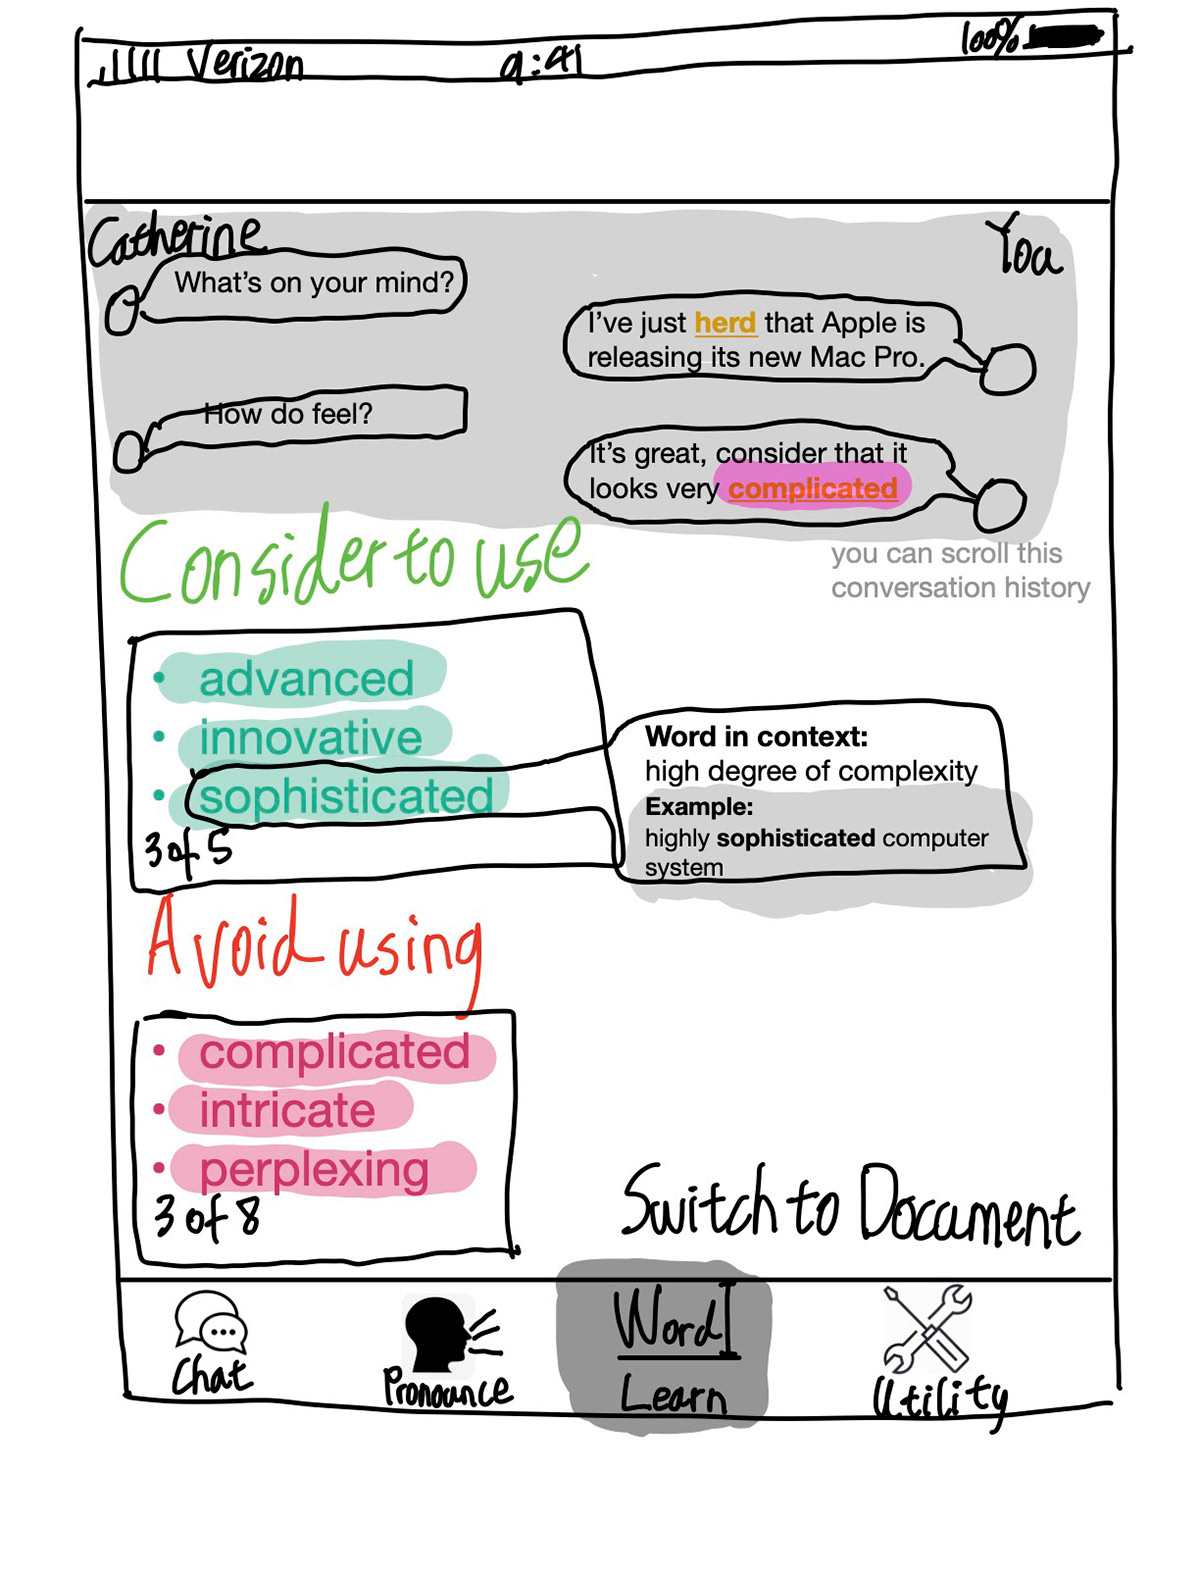 Verizon 9:41 100%
Catherine
You
What's on your mind?
I've just herd that Apple is
releasing its new Mac Pro.
How do feel?
It's great, consider that it
looks very complicated
you can scroll this
conversation history
Consider to use
• advanced
• innovative
• sophisticated
3 of 5
Word in context:
high degree of complexity
Example:
highly sophisticated computer
system
Avoid using
• complicated
• intricate
• perplexing
3 of 8
Switch to Document
Chat
Pronounce
Word
Learn
Utility